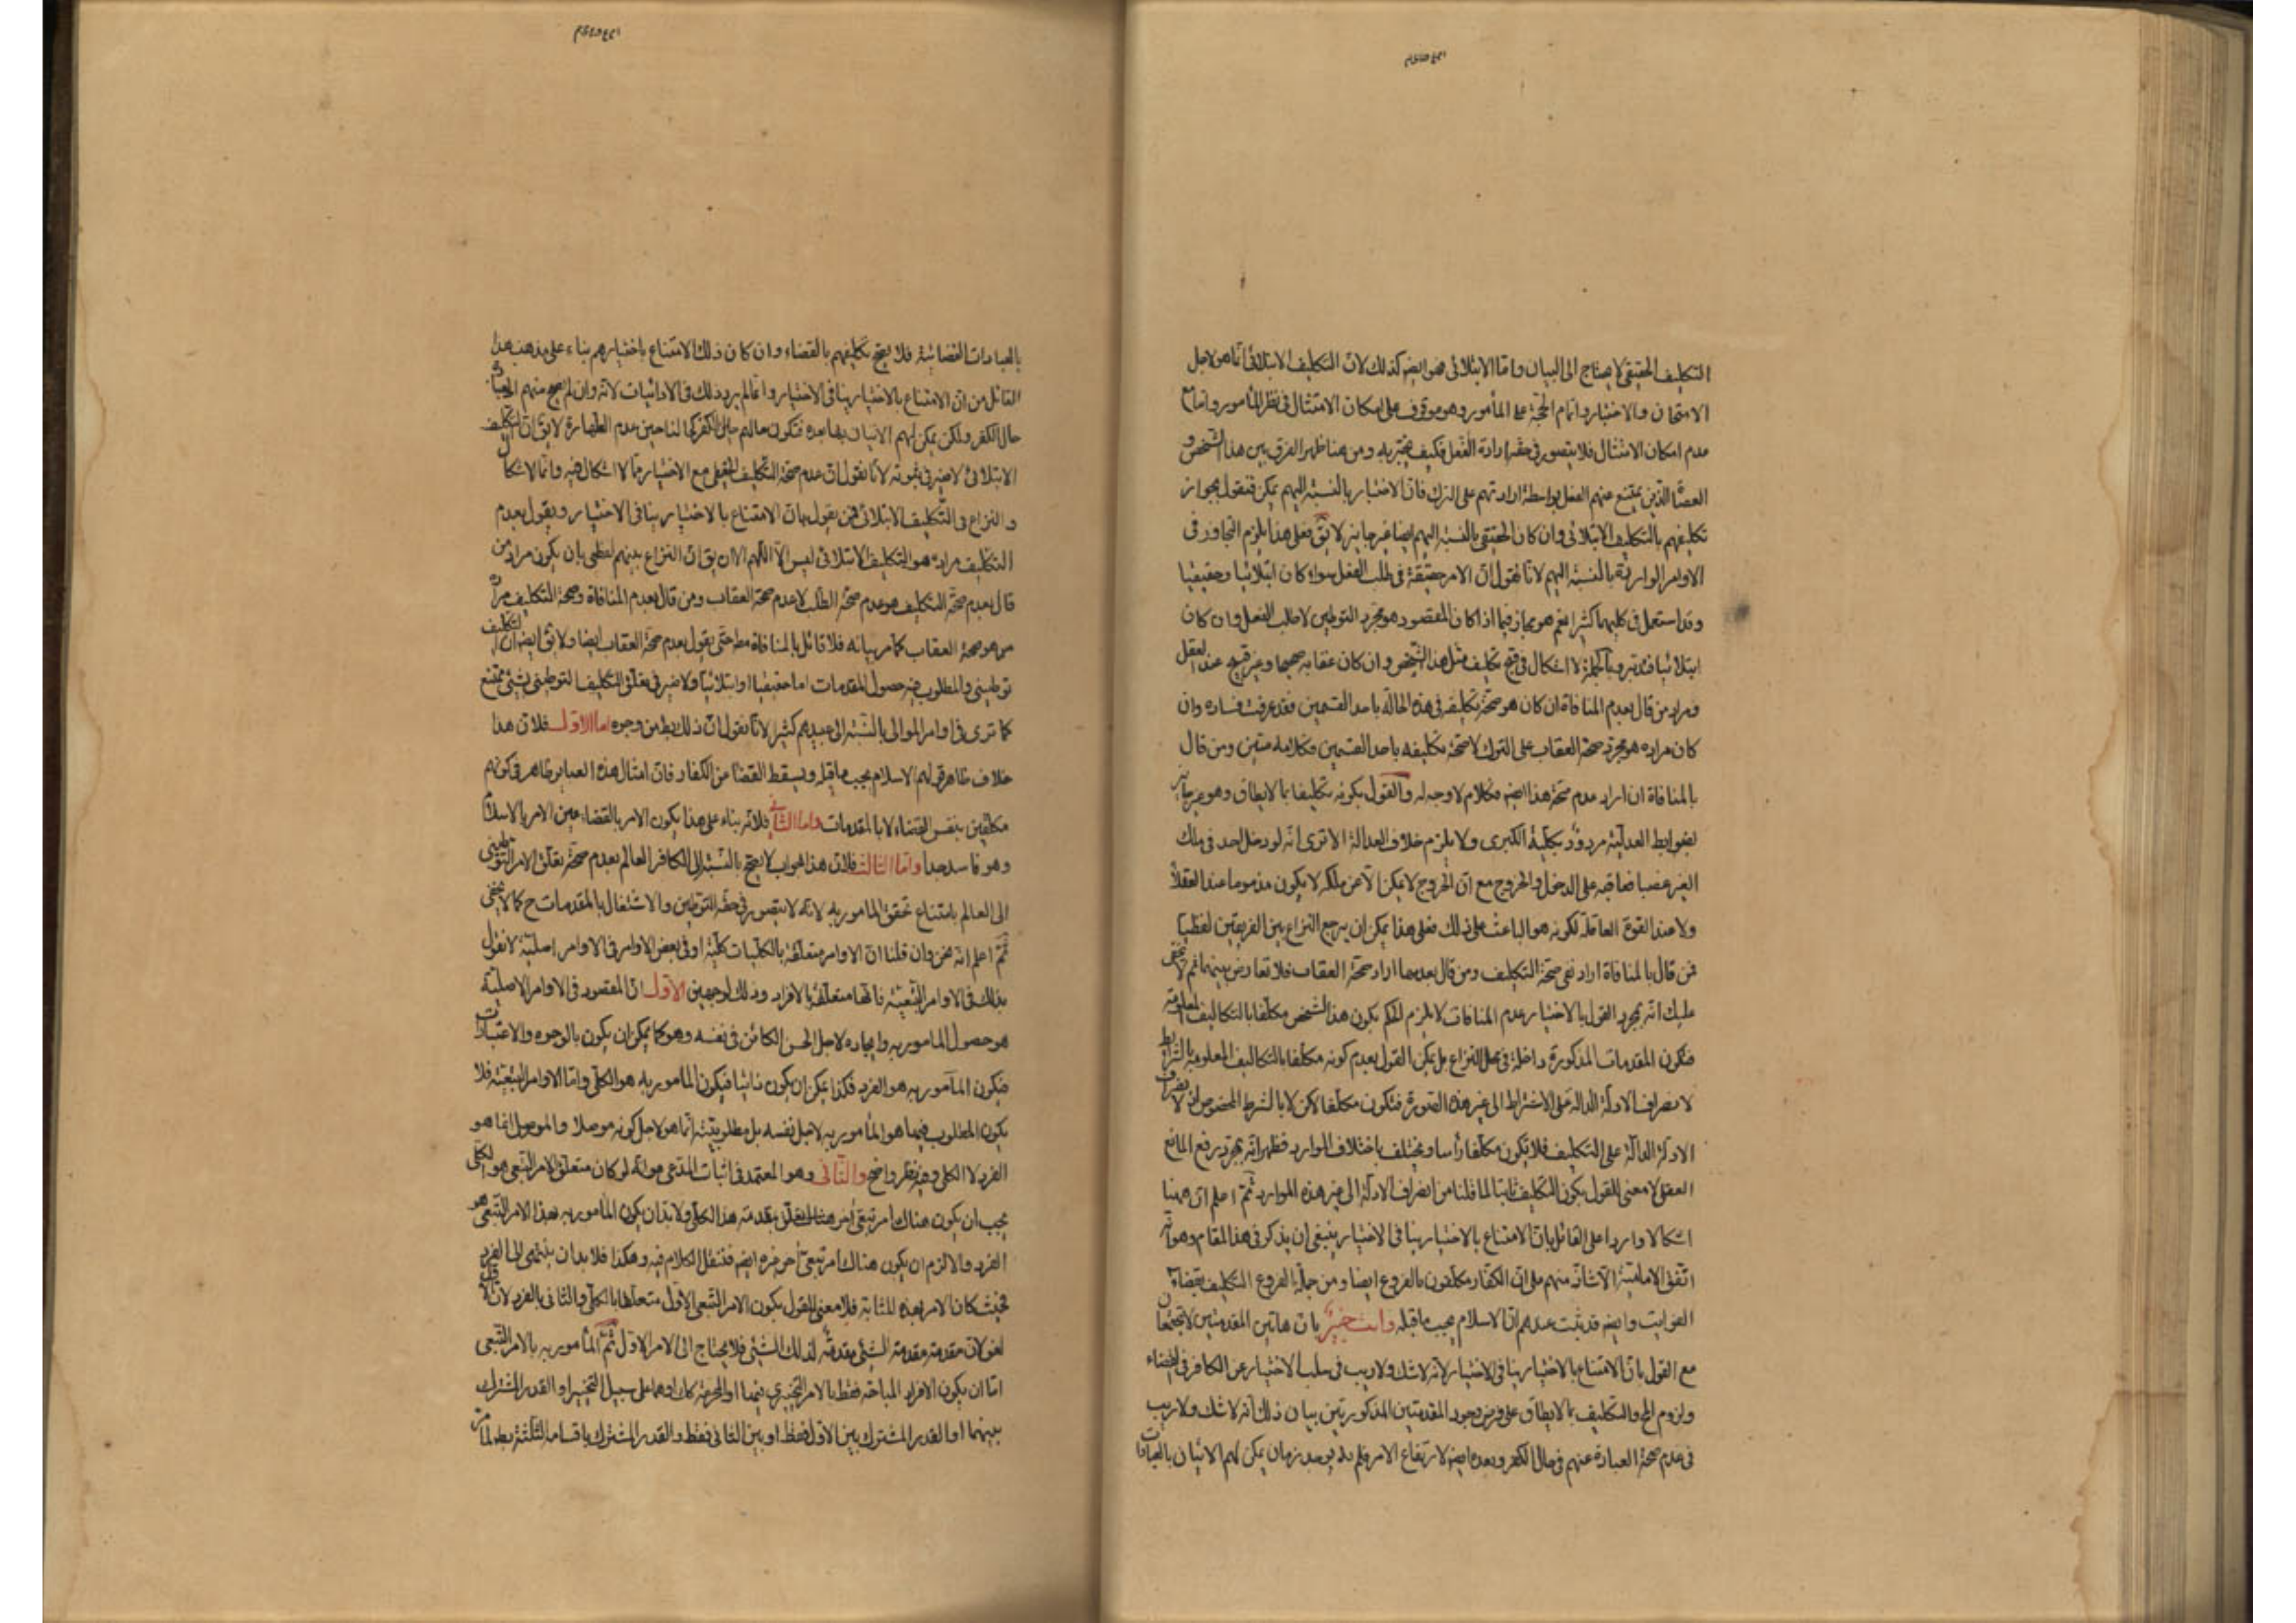 التكليف الحقيقى لا يحتاج الى البيان واما الابتلائى فهو ايضا كذلك لان التكليف الابتلائى انما هو لاجل
الامتحان والاختبار واتمام الحجة على المأمور وهو موقوف على امكان الامتثال فى نظر المأمور واما مع
عدم امكان الامتثال فلا يتصور فى حقه ارادة الفعل فكيف يختبر به ومن هنا ظهر الفرق بين هذا الشخص و
العصاة الذين يمتنع عنهم الفعل بواسطة ارادتهم على الترك فان الاختبار بالنسبة اليهم يمكن فنقول بجواز
تكليفهم بالتكليف الابتلائى وان كان الحقيقى بالنسبة اليهم ايضا غير جايز لا يق فعلى هذا يلزم التجاوز فى
الاوامر الواردة بالنسبة اليهم لانا نقول ان الامر حقيقة فى طلب الفعل سواء كان ابتلائيا وحقيقيا
وقد استعمل فى كليهما كثيرا نعم هو مجاز فيما اذا كان المقصود هو مجرد التوطين لا طلب الفعل وان كان
ابتلائيا فتدبر وبالجملة لا اشكال فى قبح تكليف مثل هذا الشخص وان كان عقابه صحيحا وغير قبيح عند العقل
ومراد من قال بعدم المنافاة ان كان هو صحة تكليفه فى هذه الحالة باحد القسمين فقد عرفت فساده وان
كان مراده هو مجرد صحة العقاب على الترك لا صحة تكليفه باحد القسمين فكلامه متين ومن قال
بالمنافاة ان اراد عدم صحة هذا ايضا فكلام لا وجه له والقول بكونه تكليفا بما لا يطاق وهو غير جايز
بضوابط العدلية مردود بكلية الكبرى ولا يلزم خلاف العدالة الا ترى انه لو دخل احد فى ملك
الغير غصبا فعاقبه على الدخول والخروج مع ان الخروج لا يمكن الا عن ملكه لا يكون مذموما عند العقلاء
ولا عند القوة العاقلة لكونه هو الباعث على ذلك فعلى هذا يمكن ان يرجع النزاع بين الفريقين لفظيا
فمن قال بالمنافاة اراد نفى صحة التكليف ومن قال بعدمها اراد صحة العقاب فلا تعارض بينهما ثم لا يخفى
عليك انه بمجرد القول بالاختيار عدم المنافات لا يلزم الحكم بكون هذا الشخص مكلفا بالتكاليف المعلومة
فتكون المقدمات المذكورة داخلة فى محل النزاع بل يمكن القول بعدم كونه مكلفا بالتكاليف المعلومة بالشرايط
لانصراف الادلة الدالة على الاشتراط الى غير هذه الصورة فتكون مكلفا لكن لا بالشرط المخصوص او لانصراف
الادلة الدالة على التكليف فلا يكون مكلفا رأسا ويختلف باختلاف الموارد فظهر انه بمجرد رفع المانع
العقلى لا معنى للقول بكون التكليف ثابتا لما قلنا من انصراف الادلة الى غير هذه الموارد ثم اعلم ان ههنا
اشكالا واردا على القائل بان الامتناع بالاختيار ينافى الاختيار ينبغى ان يذكر فى هذا المقام وهو انه
اتفق الامامية الا شاذ منهم على ان الكفار مكلفون بالفروع ايضا ومن جملة الفروع التكليف بقضاء
الفوايت وايضا قد ثبت عندهم ان الاسلام يجب ما قبله وانت خبير بان هاتين المقدمتين لا تجتمعان
مع القول بان الامتناع بالاختيار ينافى الاختيار لانه لا شك ولا ريب فى سلب الاختيار عن الكافر فى القضاء
ولزوم الحرج والتكليف بما لا يطاق على فرض وجود المقدمتين المذكورتين بيان ذلك انه لا شك ولا ريب
فى عدم صحة العبادة عنهم فى حال الكفر وبعده ايضا لارتفاع الامر فلم يوجد زمان يمكن لهم الاتيان بالعبادات
بالعبادات القضائية فلا يصح تكليفهم بالقضاء وان كان ذلك الامتناع باختيارهم بناء على مذهب هذا
القائل من ان الامتناع بالاختيار ينافى الاختيار وانما لم يرد ذلك فى الادائيات لانه وان لم يصح منهم العبادة
حال الكفر ولكن يمكن لهم الاتيان بها بعده فتكون حالهم حال الكفر كحالنا حين عدم الطهارة لا يق ان التكليف
الابتلائى لا ضير فى ثبوته لانا نقول ان عدم صحة التكليف الحقيقى مع الاختيار مما لا اشكال فيه وانما الاشكال
والنزاع فى التكليف الابتلائى فمن يقول بان الامتناع بالاختيار ينافى الاختيار ويقول بعدم
التكليف مراده هو التكليف الابتلائى ليس الا اللهم الا ان يق ان النزاع بينهم لفظى بان يكون مراد من
قال بعدم صحة التكليف هو عدم صحة الطلب لا عدم صحة العقاب ومن قال بعدم المنافاة وصحة التكليف مراده
من هو صحة العقاب كما مر بيانه فلا قائل بالمنافاة مط حتى يقول بعدم صحة العقاب ايضا ولا يق ايضا ان التكليف
توطينى والمطلوب فيه حصول المقدمات اما حقيقيا او ابتلائيا ولا ضير فى تعلق التكليف التوطينى بشئ ممتنع
كما ترى فى اوامر الموالى بالنسبة الى عبيدهم كثيرا لانا نقول ان ذلك بط من وجوه اما الاول فلان هذا
خلاف ظاهر قولهم الاسلام يجب ما قبله ويسقط القضا عن الكفار فان امثال هذه العباير ظاهر فى كونهم
مكلفين بنفس القضاء لا بالمقدمات واما الثانى فلانه بناء على هذا يكون الامر بالقضاء عين الامر بالاسلام
وهو فاسد جدا واما الثالث فلان هذا الجواب لا يصح بالنسبة الى الكافر العالم بعدم صحة تعلق الامر التوطينى
الى العالم بامتناع تحقق المامور به لانه لا يتصور فى حقه التوطين والاشتغال بالمقدمات ح كما لا يخفى
ثم اعلم انه نحن وان قلنا ان الاوامر متعلقة بالكليات كلية او فى بعض الاوامر فى الاوامر اصلية لا نقول
بذلك فى الاوامر التبعية فانها متعلقة بالافراد وذلك لوجهين الاول ان المقصود فى الاوامر الاصلية
هو حصول المامور به وايجاده لاجل الحسن الكائن فى نفسه وهو كما يمكن ان يكون بالوجوه والاعتبارات
فيكون المأمور به هو الفرد فكذا يمكن ان يكون ذاتيا فيكون المأمور به هو الكلى واما الاوامر التبعية فلا
يكون المطلوب فيها هو المأمور به لاجل نفسه بل مطلوبيته انما هو لاجل كونه موصلا والموصل انما هو
الفرد لا الكلى وفيه نظر واضح والثانى وهو المعتمد فى اثبات المدعى هو انه لو كان متعلق الامر التبعى هو الكلى
يجب ان يكون هناك امر تبعى اخر يتعلق بمقدمة هذا الكلى ولا بد ان يكون المأمور به بهذا الامر التبعى هو
الفرد والا لزم ان يكون هناك امر تبعى آخر غيره ايضا فننقل الكلام فيه وهكذا فلا بد ان ينتهى الى الفرد
فحيث كان الامر بهذه المثابة فلا معنى للقول بكون الامر التبعى الاول متعلقا بالكلى والثانى بالفرد لان الاول
لغو لان مقدمة مقدمة الشئ مقدمة لذلك الشئ فلا يحتاج الى الامر الاول ثم المأمور به بالامر التبعى
اما ان يكون الافراد المباحة فقط بالامر التخييرى بينها او المحرمة كك او هما على سبيل التخيير او القدر المشترك
بينهما او القدر المشترك بين الاول فقط او بين الثانى فقط والقدر المشترك باقسامه الثلثة بط لما مر